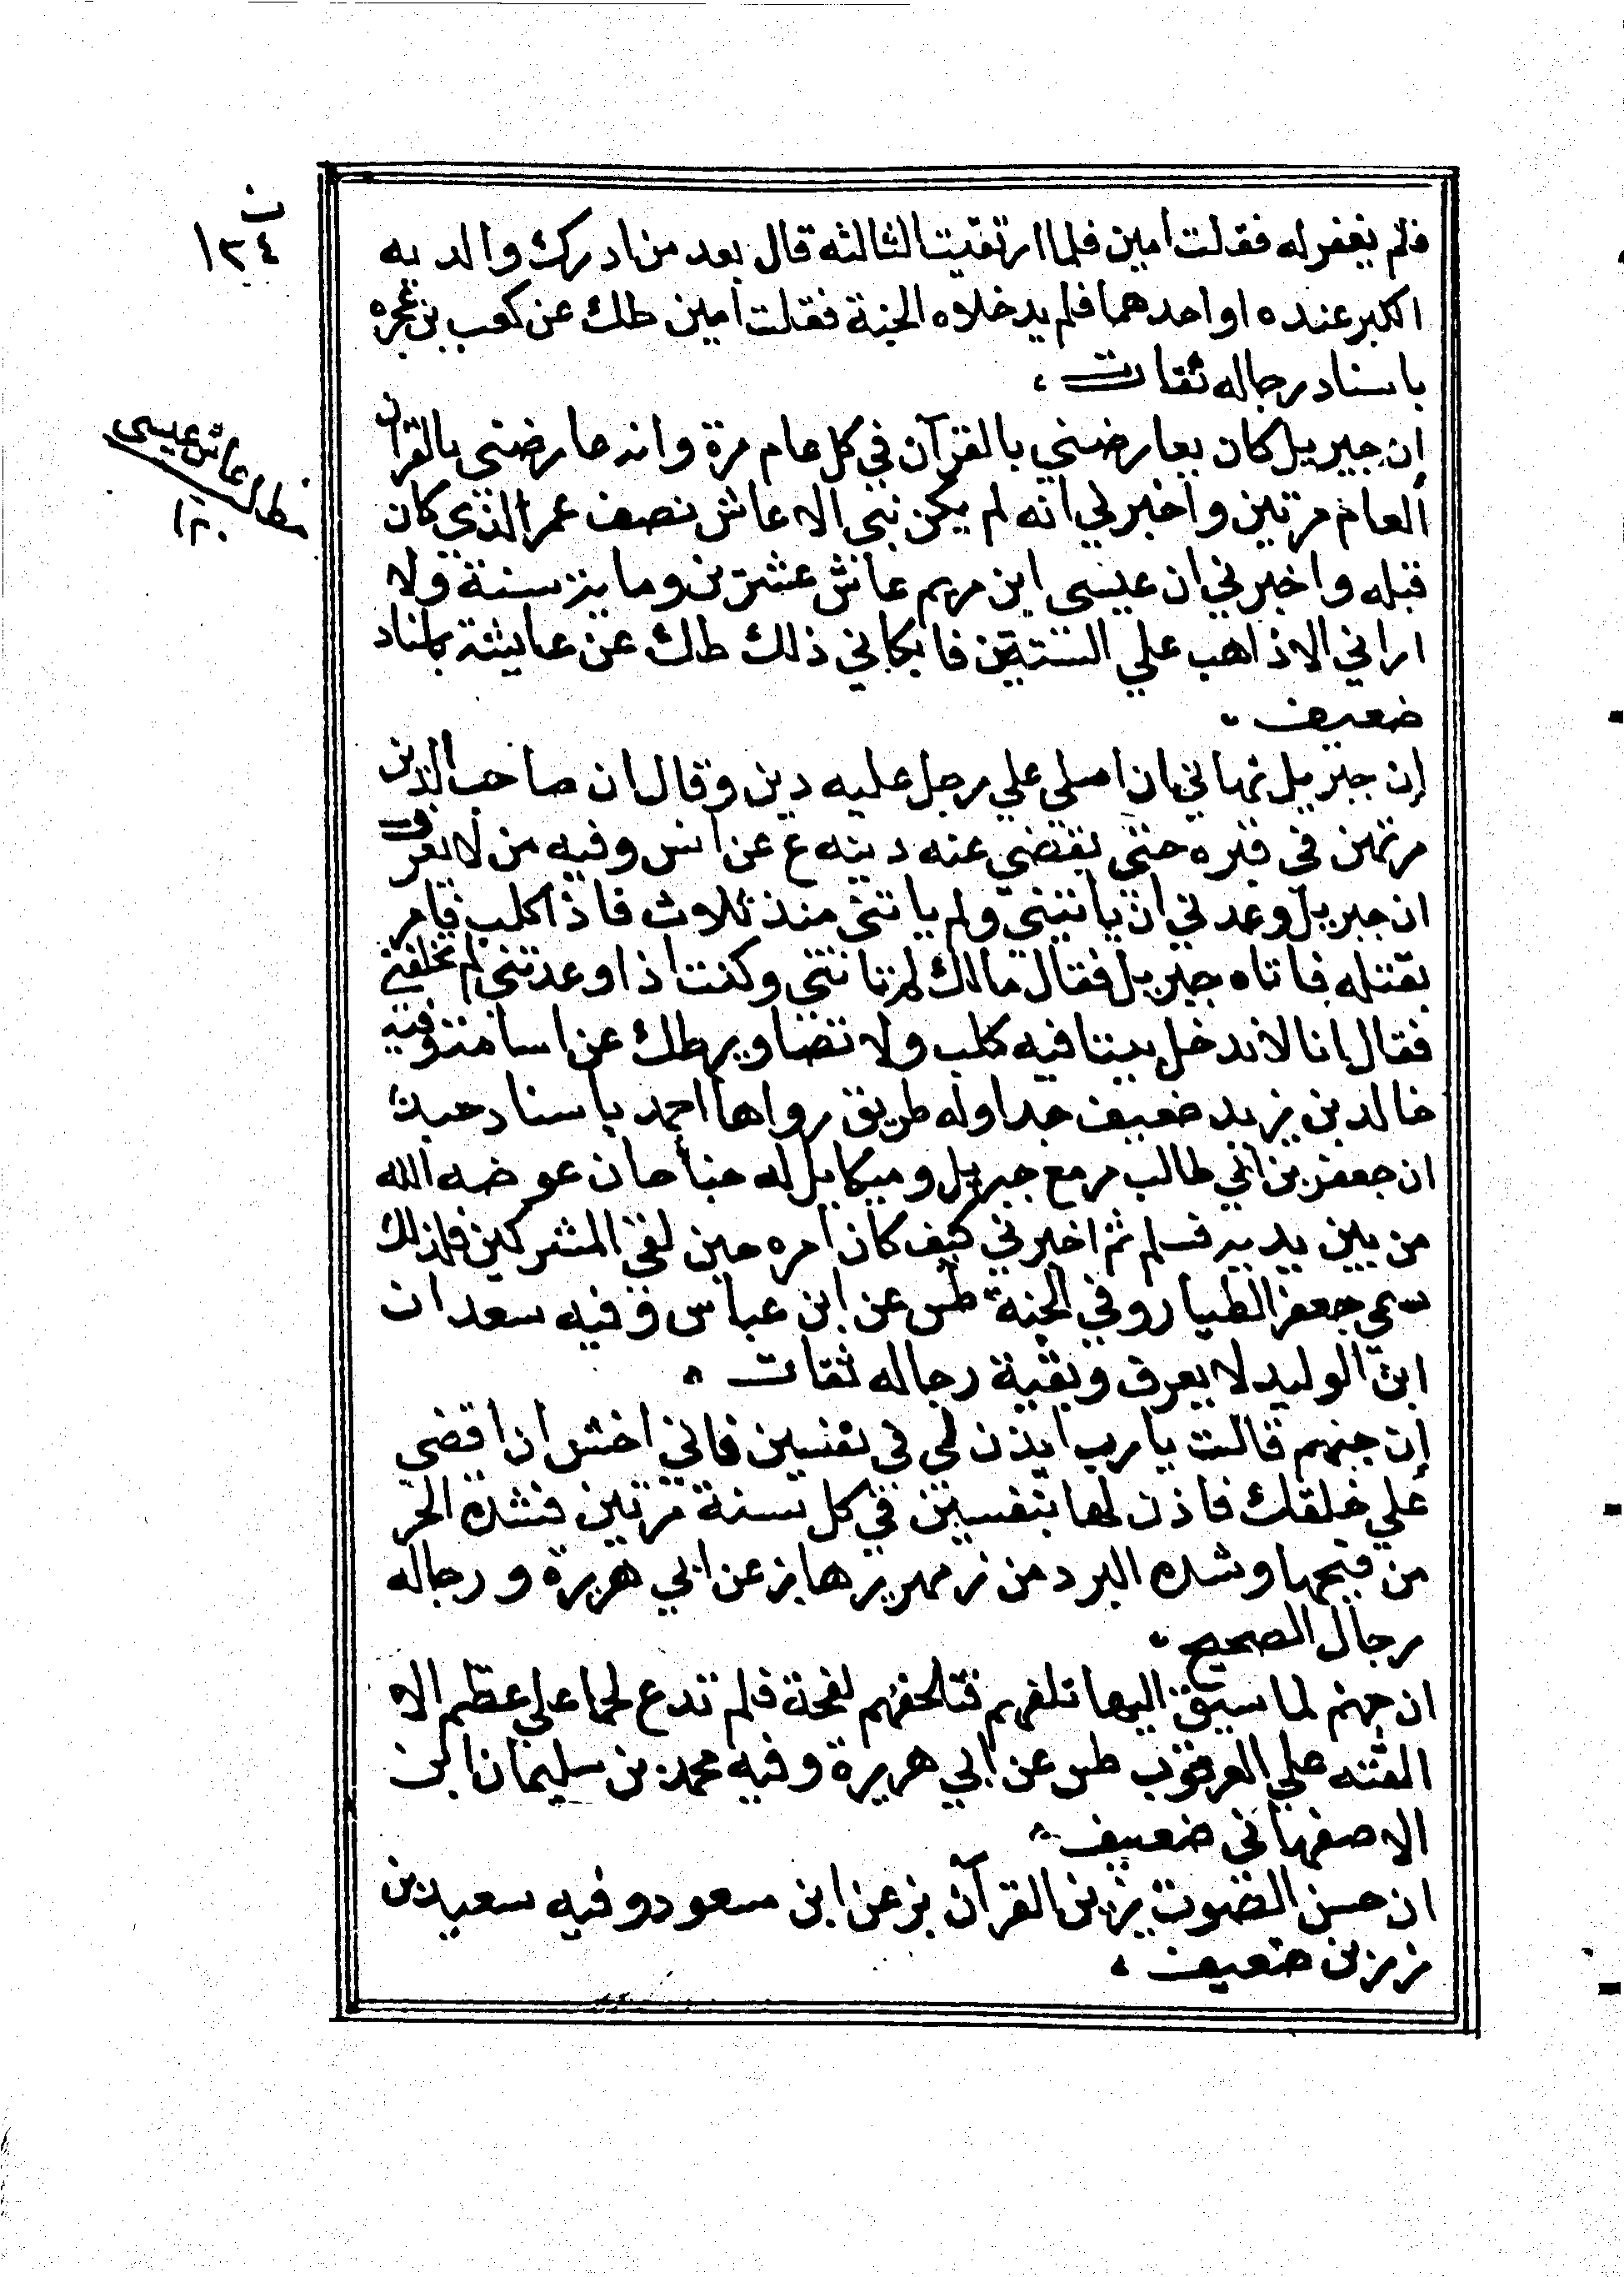 فلم يغفر له فقلت امين فلما ارتقيت الثالثه قال بعد من ادرك والديه
الكبر عنده او احدهما فلم يدخلاه الجنة فقلت امين طك عن كعب بن عجره
باسناد رجاله ثقات
إن جبريل كان يعارضني بالقرآن في كل عام مرة وانه عارضني بالقران
العام مرتين واخبرني انه لم يكن نبي الا عاش نصف عمر الذي كان
قبله واخبرني ان عيسى ابن مريم عاش عشرين وماية سنة ولا
اراني الا ذاهب علي الستين فابكاني ذلك طك عن عايشة باسناد
ضعيف
إن جبريل نهاني ان اصلي علي رجل عليه دين وقال ان صاحب الدين
مرتهن في قبره حتي يقضي عنه دينه ع عن انس وفيه من لا يعرف
ان جبريل وعدني ان ياتيني ولم ياتني منذ ثلاث فاذا كلب قامر
بقتله فاتاه جبريل فقال مالك لم تاتني وكنت اذا وعدتني لم تخلفني
فقال انا لا ندخل بيتا فيه كلب ولا تصاوير طك عن اسامة وفيه
خالد بن يزيد ضعيف جدا وله طريق رواها احمد باسناد حسن
ان جعفر بن ابي طالب مر مع جبريل وميكايل له جناحان عوضه الله
من بين يديه فسلم ثم اخبرني كيف كان امره حين لقي المشركين فلذلك
سمي جعفر الطيار وفي الجنة طس عن ابن عباس وفيه سعدان
ابن الوليد لا يعرف وبقية رجاله ثقات
إن جهنم قالت يا رب ايذن لي في نفسين فاني اخش ان اقضي
علي خلقك فاذن لها بنفسين في كل سنة مرتين فشده الحر
من فيحها وشده البرد من زمهريرها بز عن ابي هريرة ورجاله
رجال الصحيح
ان جهنم لما سيق اليها تلفهم فتلحفهم لفحة فلم تدع لحما علي عظم الا
القته علي العرقوب طس عن ابي هريرة وفيه محمد بن سليمان ابن
الاصفهاني ضعيف
ان حسن الصوت يزين القرآن بز عن ابن مسعود وفيه سعيد بن
زربن ضعيف
ب
١٢٤
عاش عيسى
١٢٠